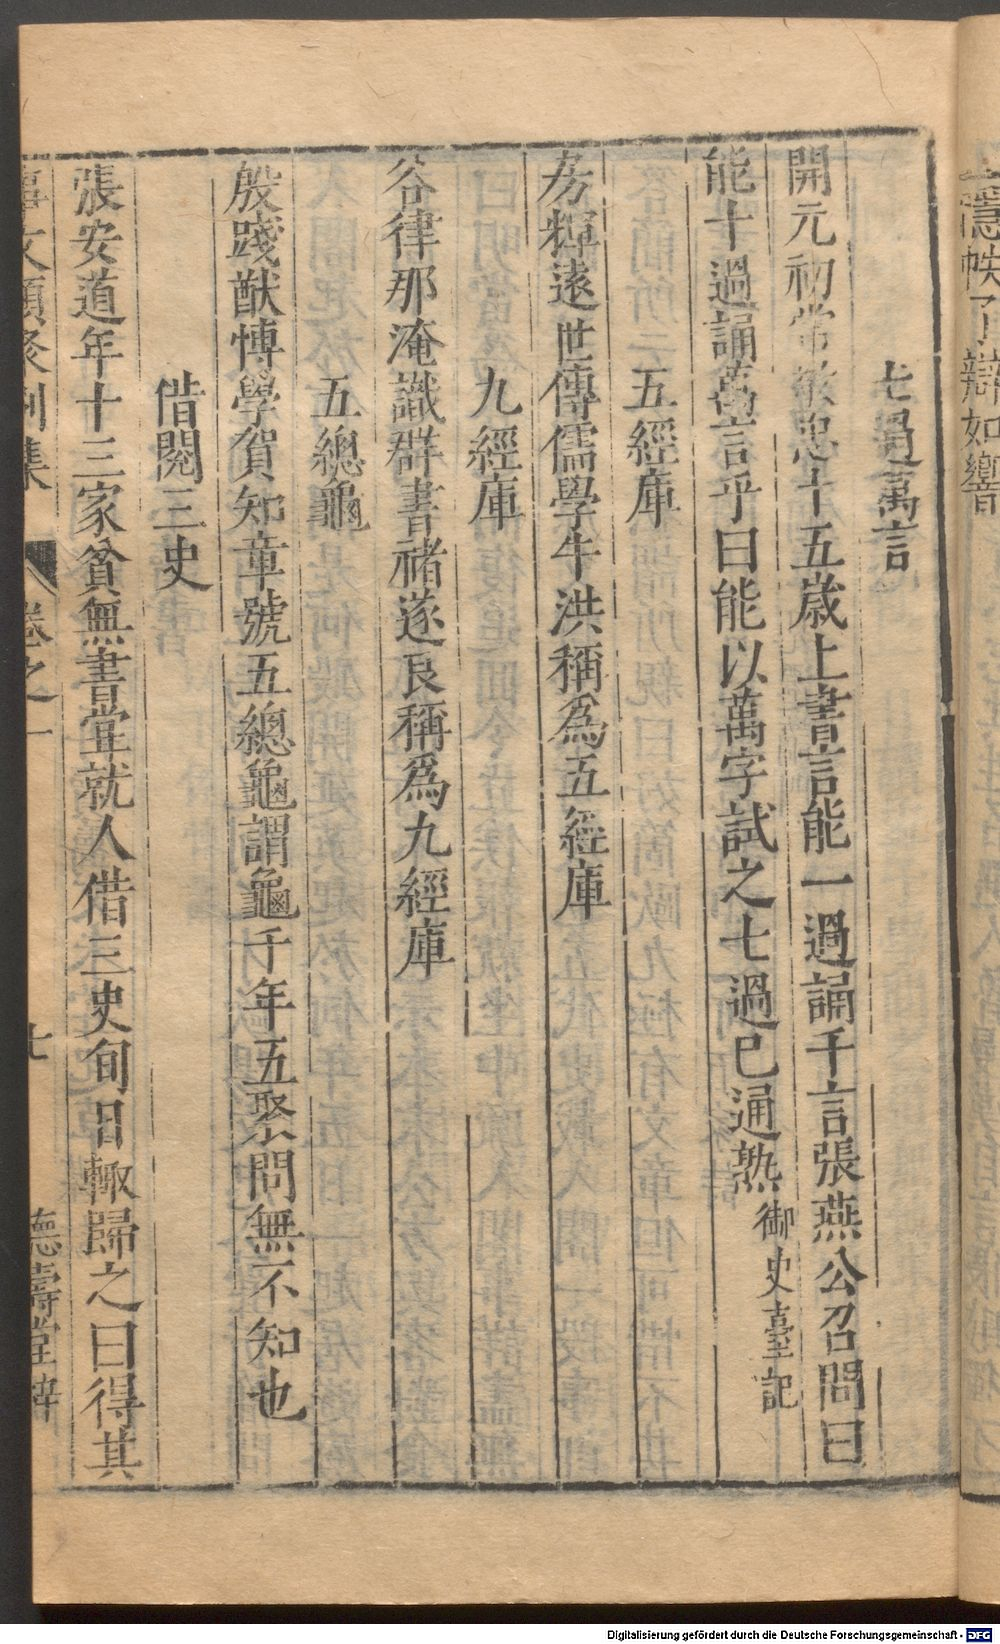 七過萬言
開元初常敬忠十五歲上書言能一過誦千言張燕公召問曰
能十過誦萬言乎曰能以萬字試之七過已通熟御史臺記
五經庫
房輝遠世傳儒學牛洪稱爲五經庫
九經庫
谷律那淹識群書禇遂良稱爲九經庫
五總龜
殷踐猷博學賀知章號五總龜謂龜千年五聚問無不知也
借閱三史
張安道年十三家貧無書嘗就人借三史旬日輙歸之曰得其
事文類聚別集 卷之一 七 德壽堂梓
Digitalisierung gefördert durch die Deutsche Forschungsgemeinschaft - DFG